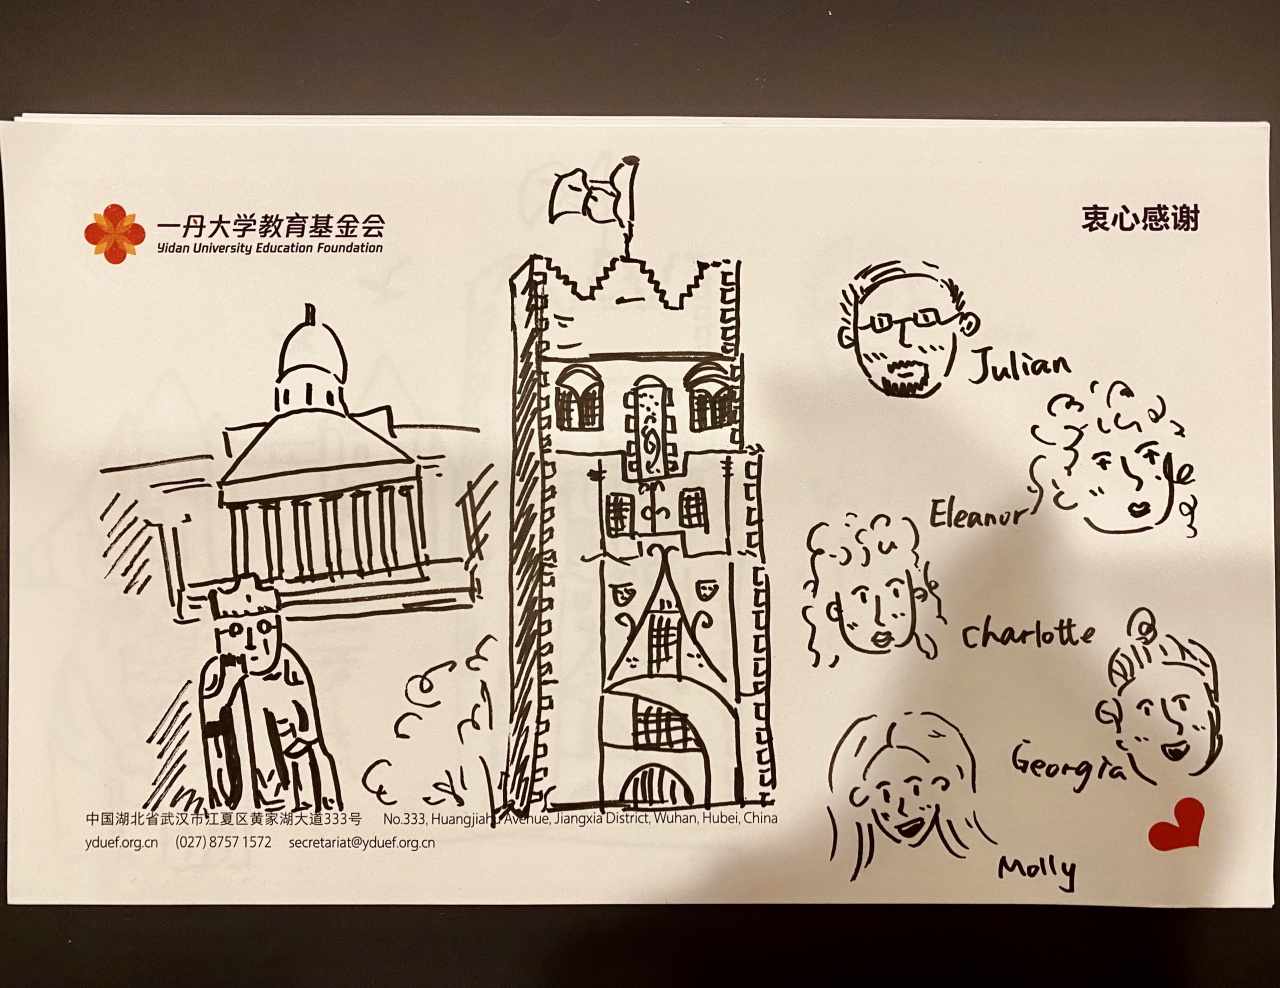 一丹大学教育基金会
Yidan University Education Foundation
衷心感谢
Julian
Eleanor
charlotte
Georgia
Molly
中国湖北省武汉市江夏区黄家湖大道333号 No.333, Huangjiahu Avenue, Jiangxia District, Wuhan, Hubei, China
yduef.org.cn (027) 8757 1572 secretariat@yduef.org.cn